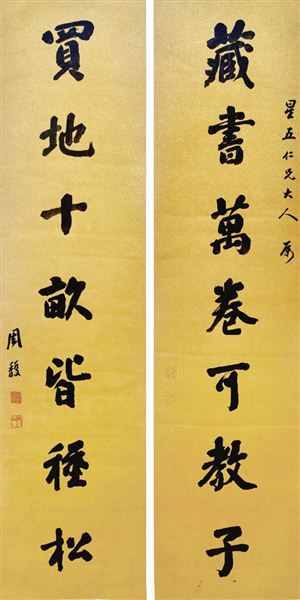 星五仁兄大人属
藏書萬卷可教子
買地十畝皆種松
周馥